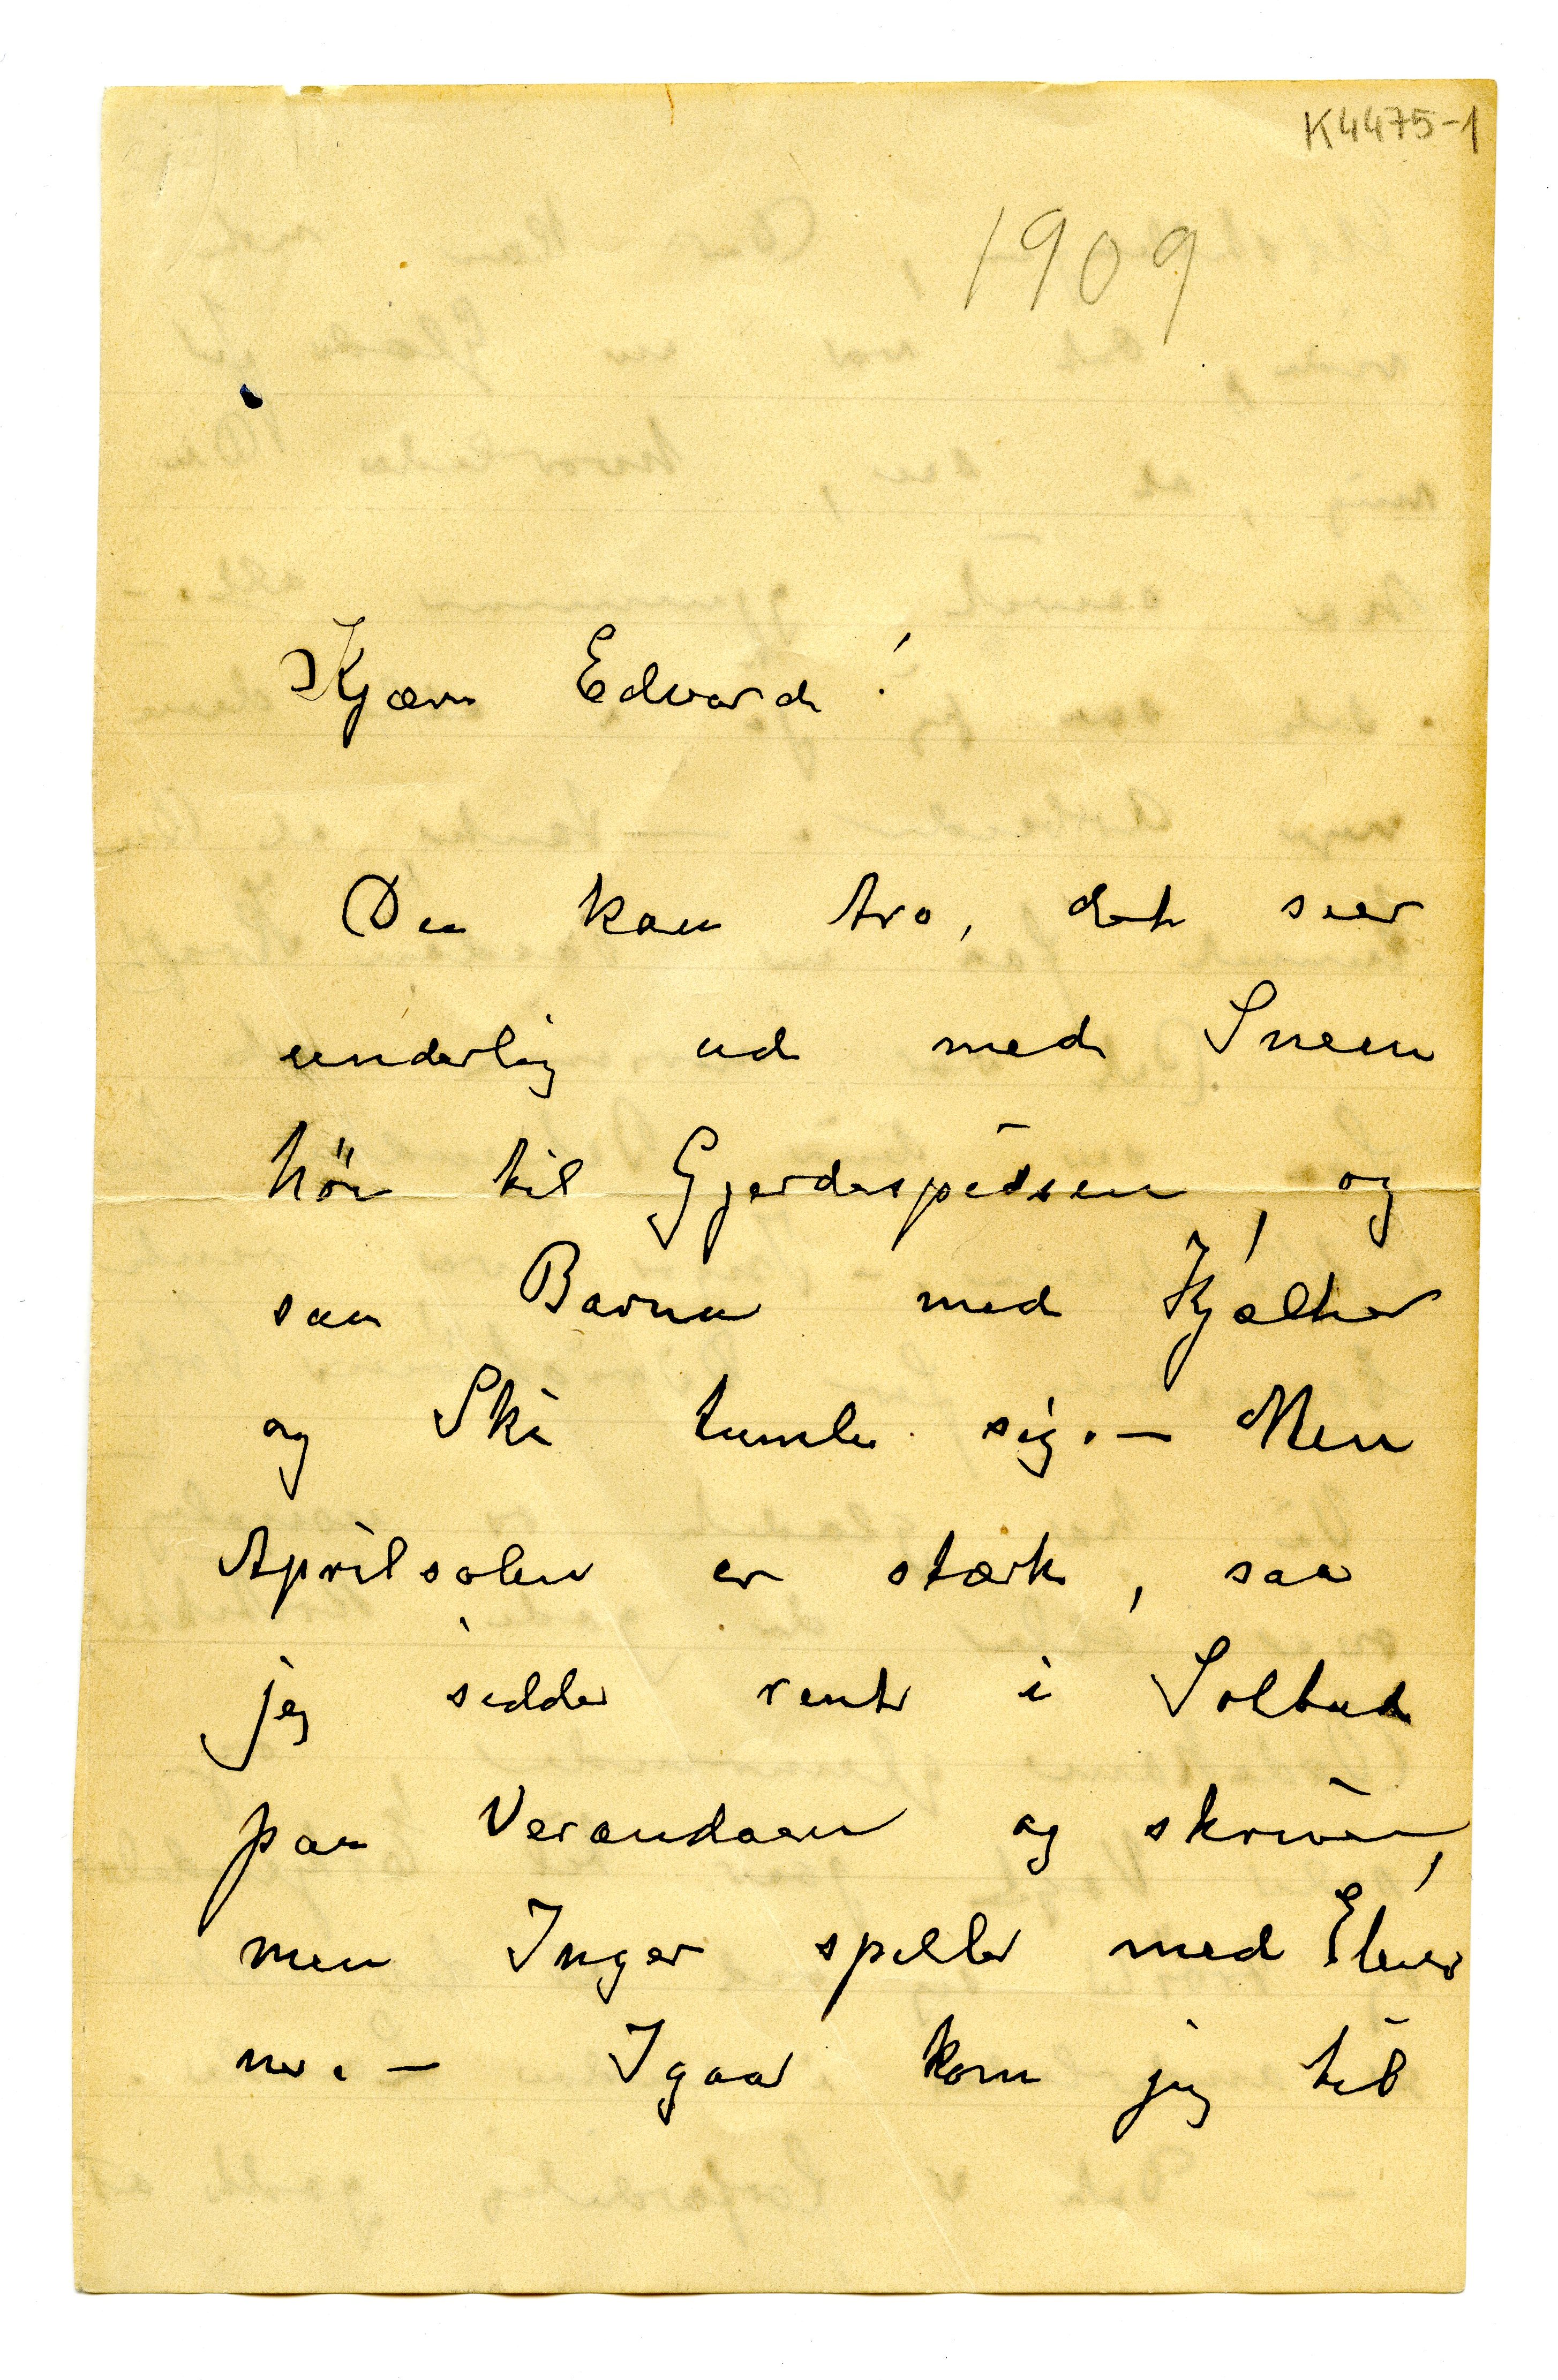 K4475-1
1909
Kjære Edvard!
Du kan tro, det seer
underlig ud med Sneen
høi til Gjerdespidsen, og
saa Barna med Kjælker
og Ski tumle sig. — Men
Aprilsolen er stærk, saa
jeg sidder rent i Solbad
paa Verandaen og skriver,
men Inger spiller med Elever
ne. — Igaar kom jeg til